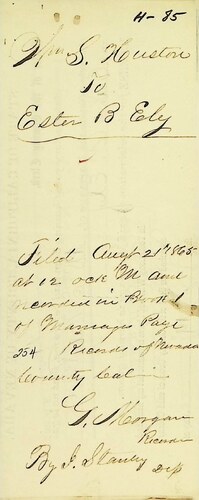 H-85
Wm S. Huston
To
Ester B Ely
Filed Augt 21st 1865
at 12 ock M and
recorded in Book 1
of Marriages Page
254 Records of Nevada
County Cal
G. Morgan
Recorder
By J. Stanley Dep